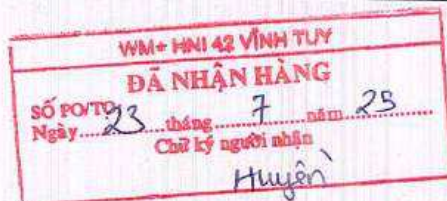 WM+ HNI 42 VĨNH TUY
ĐÃ NHẬN HÀNG
SỐ PO/TO
Ngày 23 tháng 7 năm 25
Chữ ký người nhận
Huyền